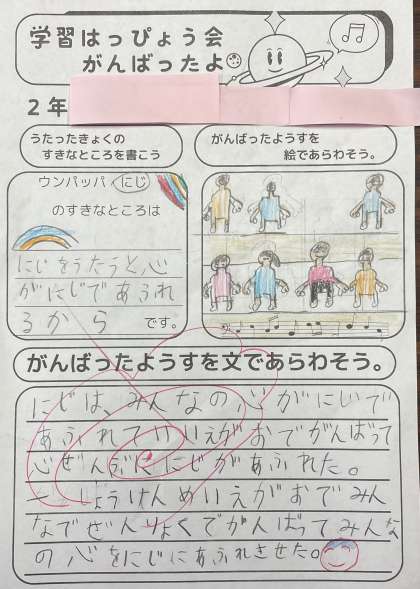 学習はっぴょう会
がんばったよ
2年
うたったきょくの
すきなところを書こう
がんばったようすを
絵であらわそう。
ウンパッパ・にじ
のすきなところは
にじをうたうと、心
がにじであふれ
るから
です。
がんばったようすを文であらわそう。
にじは、みんなの心がにじで
あふれていいえがおでがんばって
心ぜんぶににじがあふれた。
一しょうけんめいえがおでみん
なでぜんりょくでがんばってみんな
の心をにじにあふれさせた。